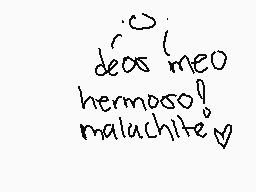 deos meo
hermoso!
malachite♡